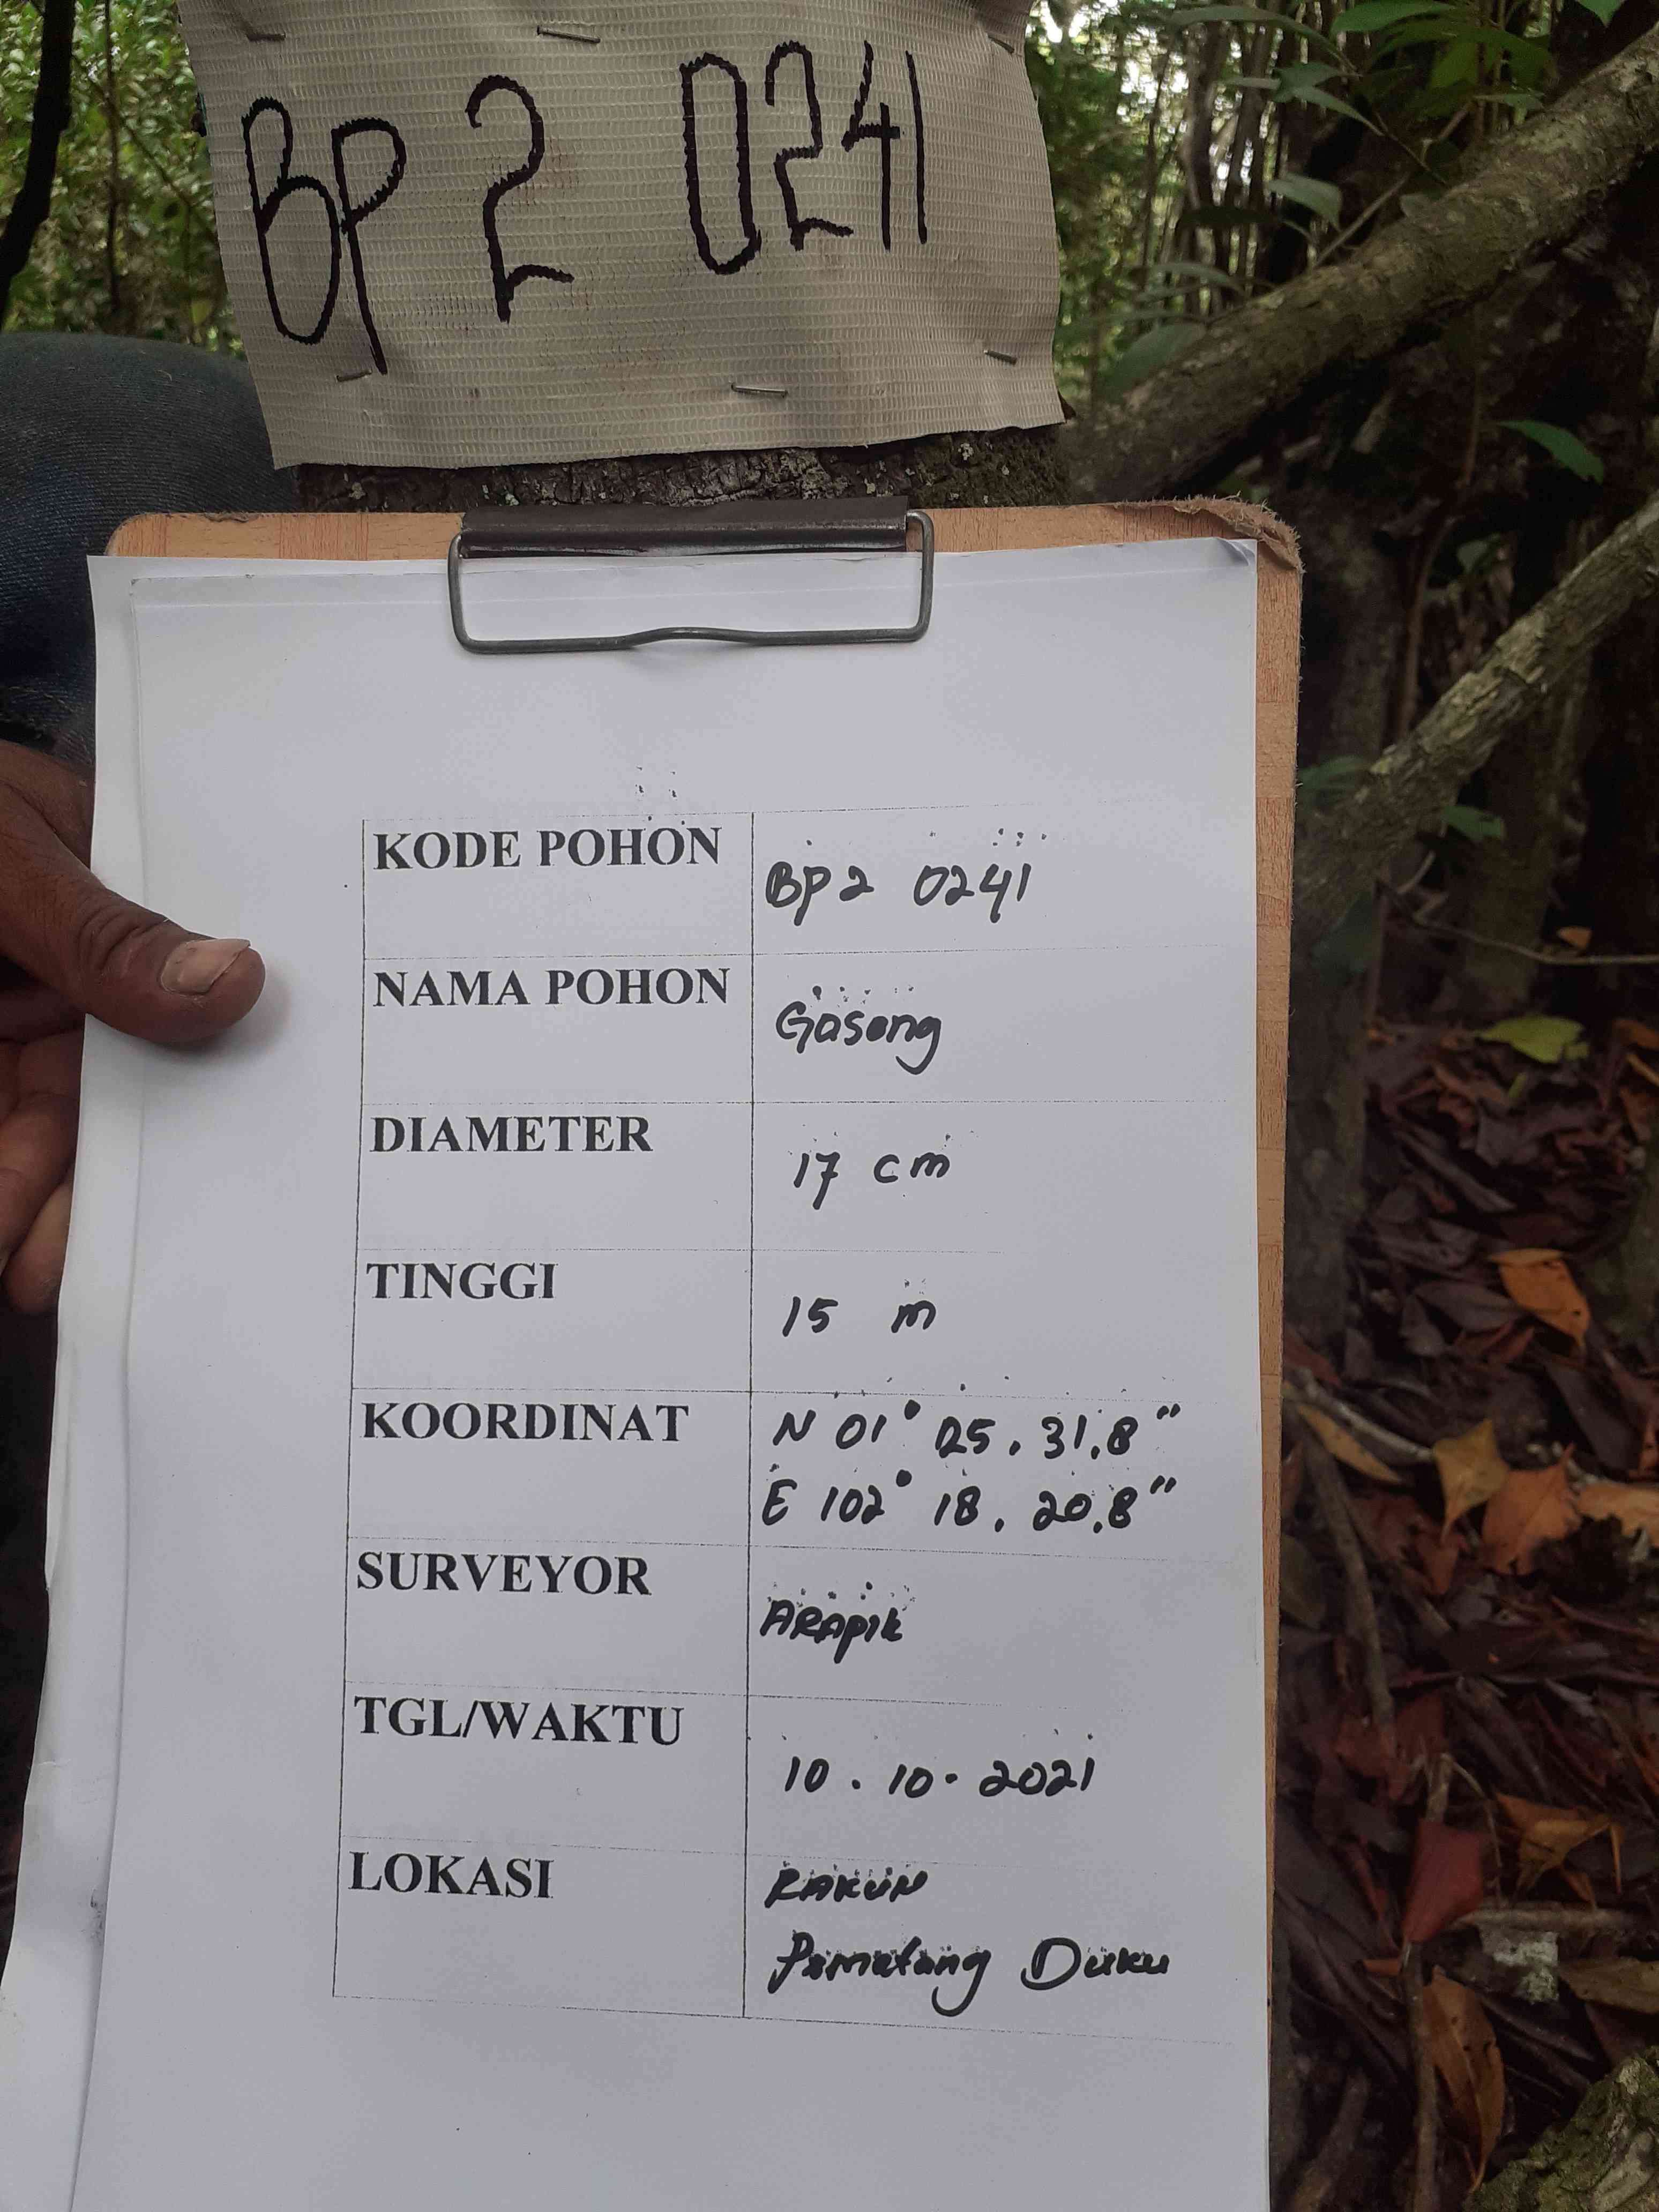 BP 2 0241
KODE POHON
BP 2 0241
NAMA POHON
Gasong
DIAMETER
17 cm
TINGGI
15 m
KOORDINAT
N 01° 25. 31,8"
E 102° 18. 20,8"
SURVEYOR
ARAPIK
TGL/WAKTU
10.10.2021
LOKASI
RAKUN
Pematang Duku